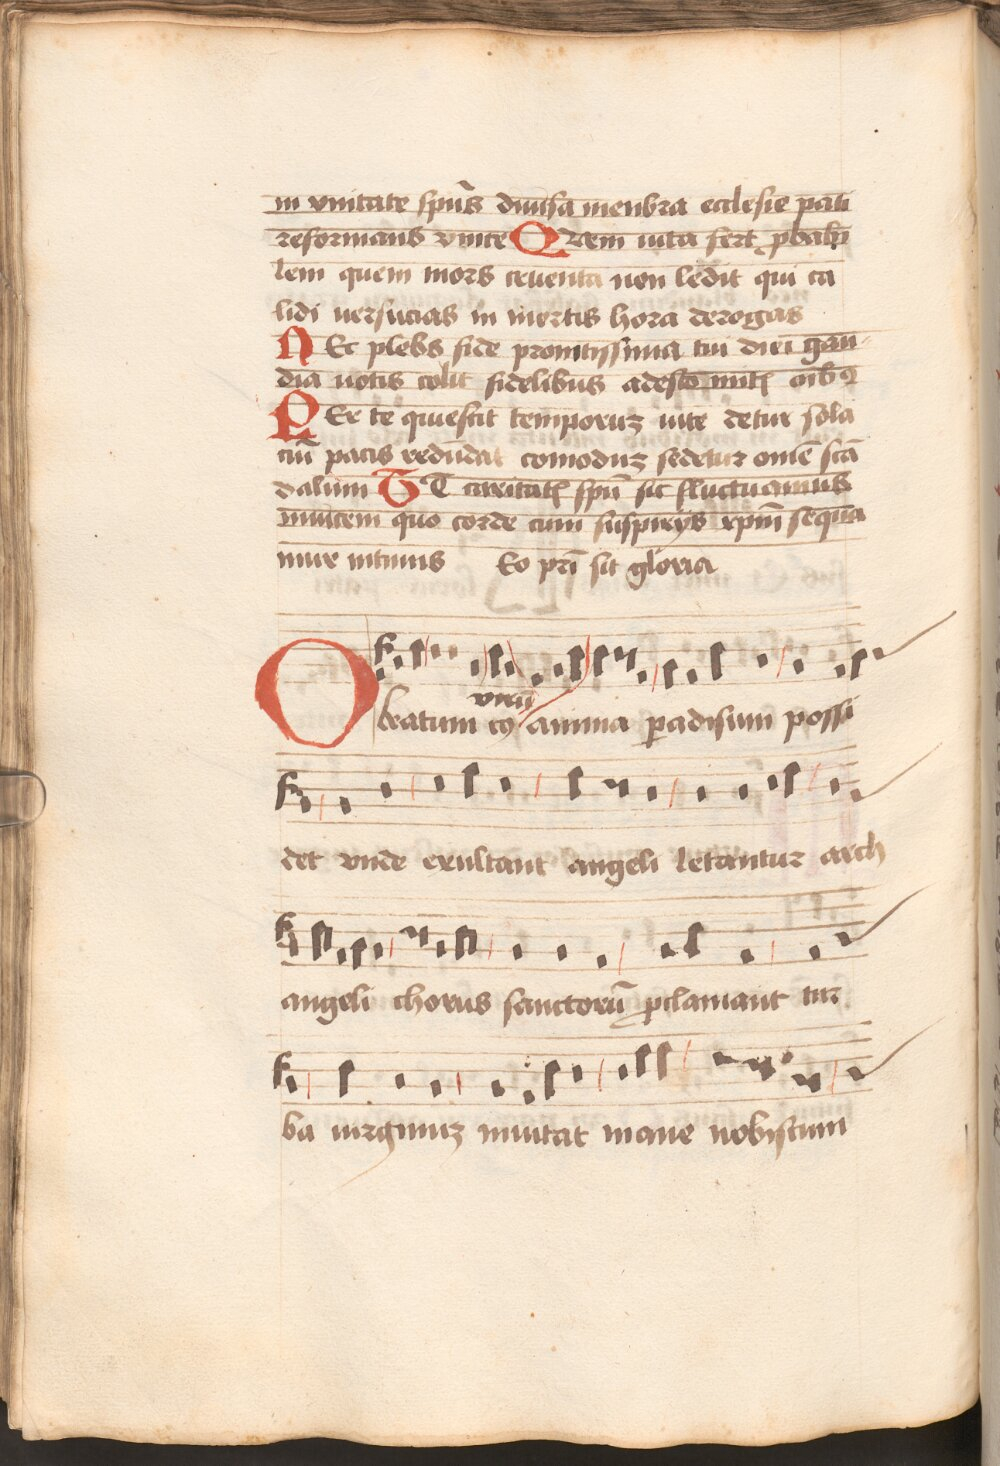 in vnitate spūs diuisa menbra ecclesie pati
reformans vnite Quem vita fert pbabi
lem quem mors cruenta non ledit qui ca
lidi uersucias in mortis hora derogas
Nec plebs fide promtissima tui diei gau
dia uotis colit fidelibus adesto mitꝭ oībꝫ
Per te quiescit temporuz uite detur sola
ciū pacis redūdat comoduz sedetur omne scā
dalum Vt caritatꝭ spū sic fluctuamus
inuicem quo corde cum suspirijs xpm̄ sequa
mur intimis Eo prī sit gloria
O beatum virū cꝰ anima paradisum possi
det vnde exultant angeli letantur arch
angeli chorus sanctorū pclamant tur
ba uirginuz inuitat mane nobiscum